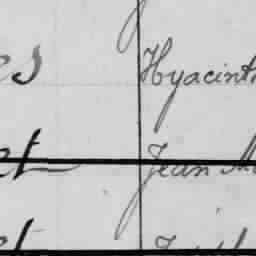 es Hyacinth
et Jean M
et